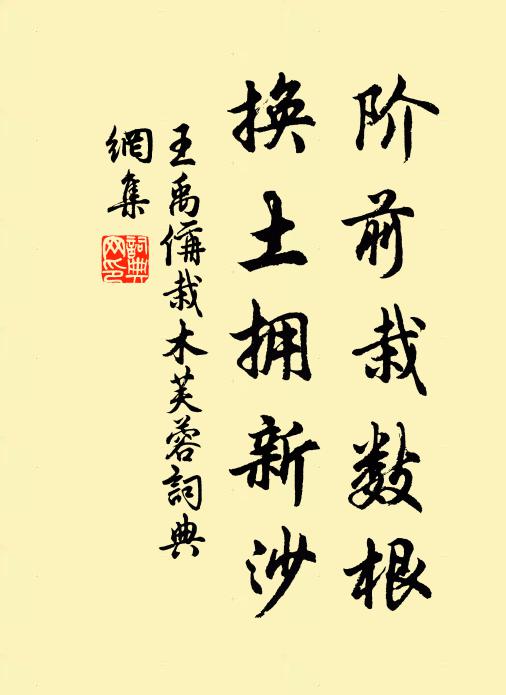 阶前栽数根
换土拥新沙
王禹偁栽木芙蓉词典
網集
詞典網印